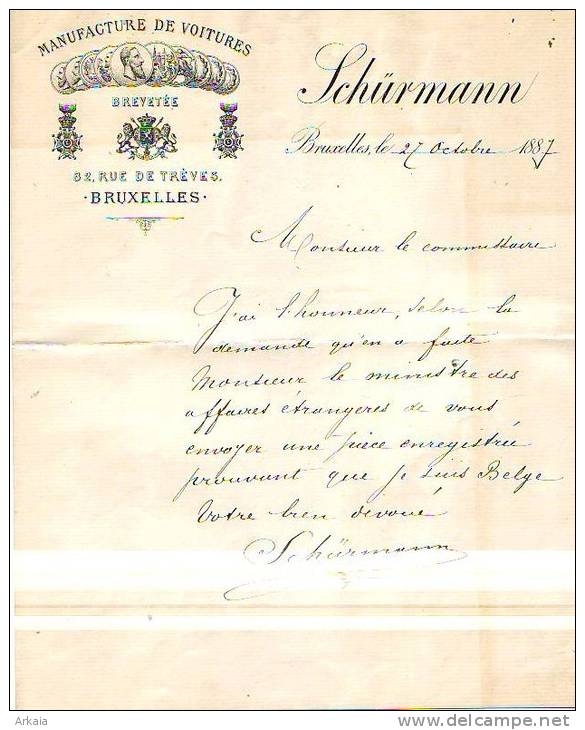 MANUFACTURE DE VOITURES
BREVETÉE
82, RUE DE TRÈVES.
·BRUXELLES·
Schürmann
Bruxelles, le 27 Octobre 1887
Monsieur le commissaire
J'ai l'honneur, selon la
demande qu'en a faite
Monsieur le ministre des
affaires étrangères de vous
envoyer une pièce enregistrée
prouvant que je suis Belge
Votre bien devoué
Schürmann
Arkaia
www.delcampe.net